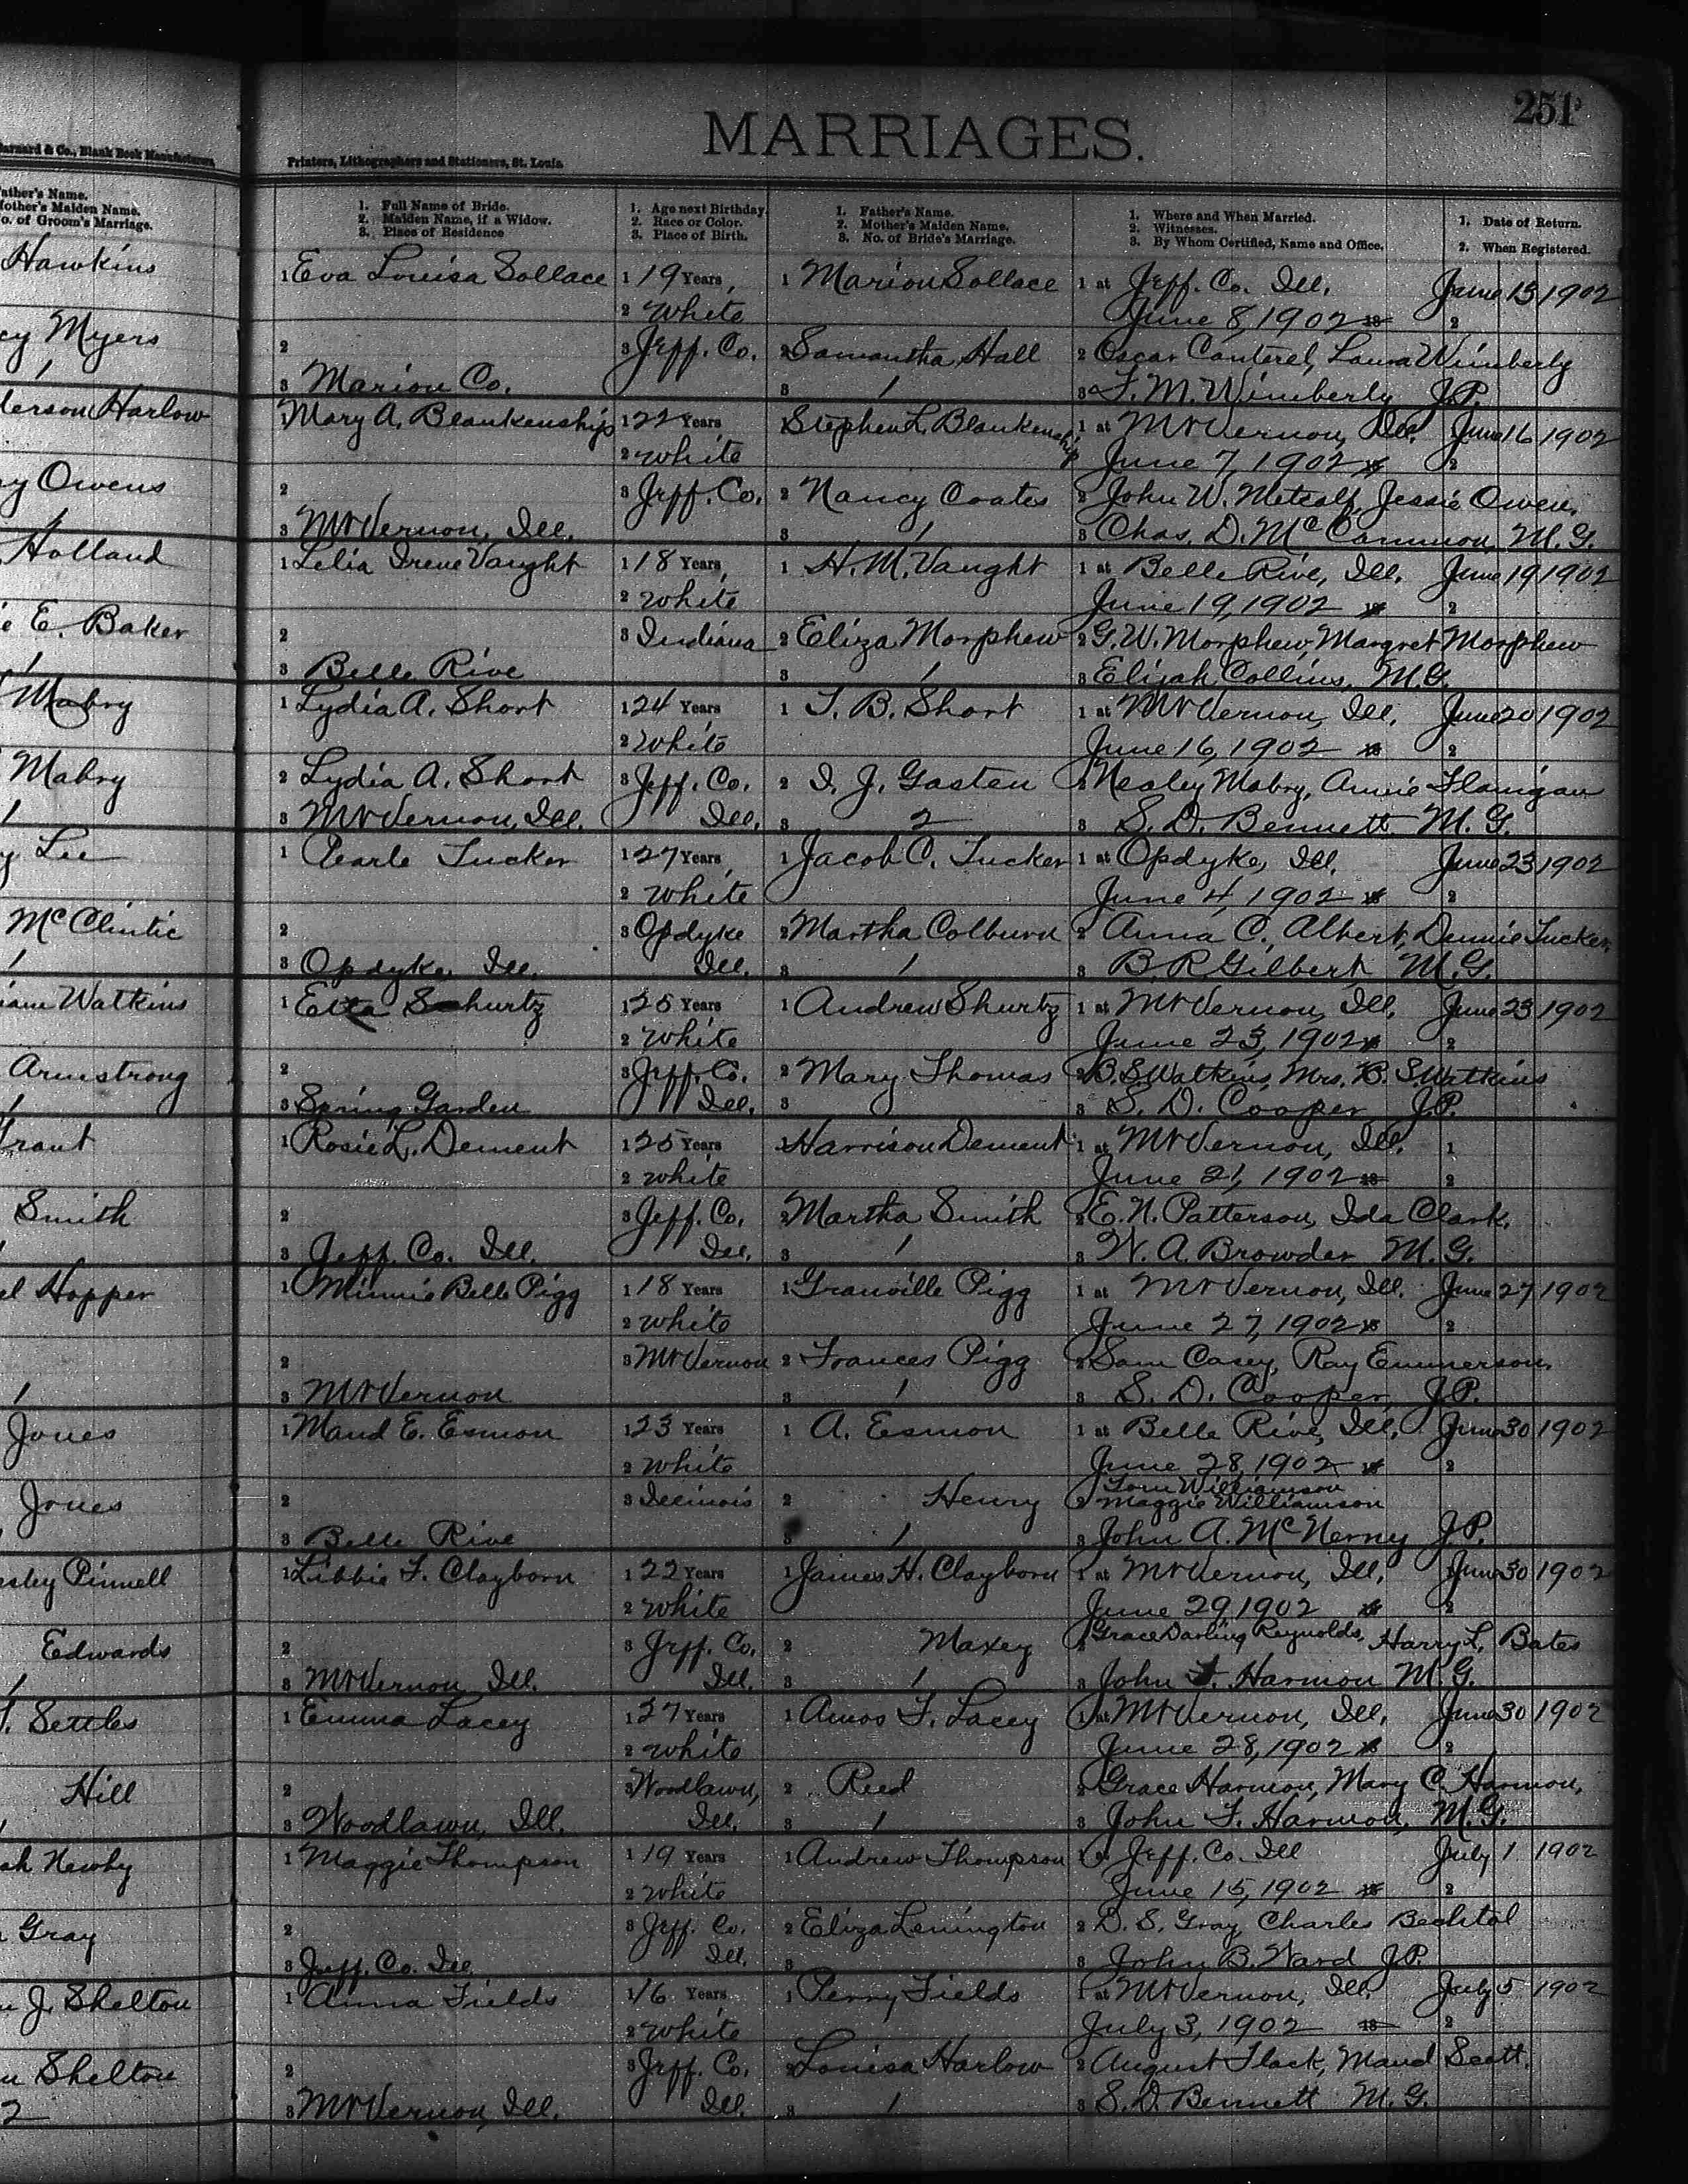 251
MARRIAGES.
Barnard & Co., Blank Book Manufacturers,
Printers, Lithographers and Stationers, St. Louis.
Father's Name.
Mother's Maiden Name.
No. of Groom's Marriage.
1. Full Name of Bride.
2. Maiden Name, if a Widow.
3. Place of Residence
1. Age next Birthday.
2. Race or Color.
3. Place of Birth.
1. Father's Name.
2. Mother's Maiden Name.
3. No. of Bride's Marriage.
1. Where and When Married.
2. Witnesses.
3. By Whom Certified, Name and Office.
1. Date of Return.
2. When Registered.
Hawkins
1 Eva Louisa Sollace 1 19 Years, 1 Marion Sollace 1 at Jeff. Co. Ill. June 13 1902
2 White June 8, 1902 18 2
cy Myers
2 3 Jeff. Co. 2 Samantha Hall 2 Oscar Canterel, Laura Wimberly
1
3 Marion Co. 3 1 3 F. M. Wimberly J.P.
derson Harlow
1 Mary A. Blankenship 1 22 Years 1 Stephen L. Blankenship 1 at Mt Vernon, Ill. June 16 1902
2 White June 7, 1902 18 2
ry Owens
2 3 Jeff. Co. 2 Nancy Coates 2 John W. Metcalf, Jessie Owen.
1
3 Mt Vernon, Ill. 3 1 3 Chas. D. McCammon, M.G.
Holland
1 Lelia Irene Vaught 1 18 Years, 1 H. M. Vaught 1 at Belle Rive, Ill. June 19 1902
2 White June 19, 1902 18 2
e E. Baker
2 3 Indiana 2 Eliza Morphew 2 G. W. Morphew, Margret Morphew
1
3 Belle Rive 3 1 3 Elijah Collins, M.G.
Mabry
1 Lydia A. Short 1 24 Years 1 T. B. Short 1 at Mt Vernon, Ill. June 20 1902
2 White June 16, 1902 18 2
Mabry
2 Lydia A. Short 3 Jeff. Co. 2 I. J. Gasten 2 Nealey Mabry, Annie Flanigan
1
3 Mt Vernon, Ill. Ill. 3 2 3 S. D. Bennett M.G.
y Lee
1 Pearle Tucker 1 27 Years, 1 Jacob C. Tucker 1 at Opdyke, Ill. June 23 1902
2 White June 4, 1902 18 2
McClintic
2 3 Opdyke 2 Martha Colburn 2 Anna C. Albert, Dennie Tucker.
1
3 Opdyke, Ill. Ill. 3 1 3 B. R. Gilbert, M.G.
iam Watkins
1 Etta Schurtz 1 25 Years 1 Andrew Shurtz 1 at Mt Vernon, Ill. June 23 1902
2 White June 23, 1902 18 2
Armstrong
2 3 Jeff. Co. 2 Mary Thomas 2 B. S. Watkins, Mrs. B. S. Watkins
1
3 Spring Garden Ill. 3 3 S. D. Cooper J.P.
Grant
1 Rosie L. Dement 1 25 Years 1 Harrison Dement 1 at Mt Vernon, Ill. 1
2 White June 21, 1902 18 2
Smith
2 3 Jeff. Co. 2 Martha Smith 2 E. N. Patterson, Ida Clark.
3 Jeff. Co. Ill. Ill. 3 1 3 W. A. Browder M.G.
el Hopper
1 Minnie Belle Pigg 1 18 Years 1 Granville Pigg 1 at Mt Vernon, Ill. June 27 1902
2 White June 27, 1902 18 2
2 3 Mt Vernon 2 Frances Pigg 2 Sam Casey, Ray Emmerson.
1
3 Mt Vernon 3 1 3 S. D. Cooper J.P.
Jones
1 Maud E. Esmon 1 23 Years 1 A. Esmon 1 at Belle Rive, Ill. June 30 1902
2 White June 28, 1902 18 2
Jones
2 3 Illinois 2 Henry 2 Torn Williamson
Maggie Williamson
3 Belle Rive 3 1 3 John A. McNerny J.P.
esley Pinnell
1 Libbie F. Clayborn 1 22 Years 1 James H. Clayborn 1 at Mt Vernon, Ill. June 30 1902
2 White June 29, 1902 18 2
Edwards
2 3 Jeff. Co. 2 Maxey 2 Grace Darling Reynolds, Harry L. Bates
1
3 Mt Vernon Ill. Ill. 3 1 3 John F. Harmon M.G.
T. Settles
1 Emma Lacey 1 27 Years 1 Amos F. Lacey 1 at Mt Vernon, Ill. June 30 1902
2 White June 28, 1902 18 2
Hill
2 3 Woodlawn, 2 Reed 2 Grace Harmon, Mary C. Harmon,
3 Woodlawn, Ill. Ill. 3 1 3 John F. Harmon, M.G.
ah Newby
1 Maggie Thompson 1 19 Years 1 Andrew Thompson 1 at Jeff. Co. Ill July 1 1902
2 White June 15, 1902 18 2
Gray
2 3 Jeff. Co. 2 Eliza Lenington 2 D. S. Gray Charles Bechtol
3 Jeff. Co. Ill. Ill. 3 3 John B. Ward J.P.
J. Shelton
1 Anna Fields 1 16 Years 1 Perry Fields 1 at Mt Vernon, Ill. July 5 1902
2 White July 3, 1902 18 2
Shelton
2 3 Jeff. Co. 2 Louisa Harlow 2 August Flack, Maud Scott.
2
3 Mt Vernon, Ill. Ill. 3 1 3 S. D. Bennett M.G.